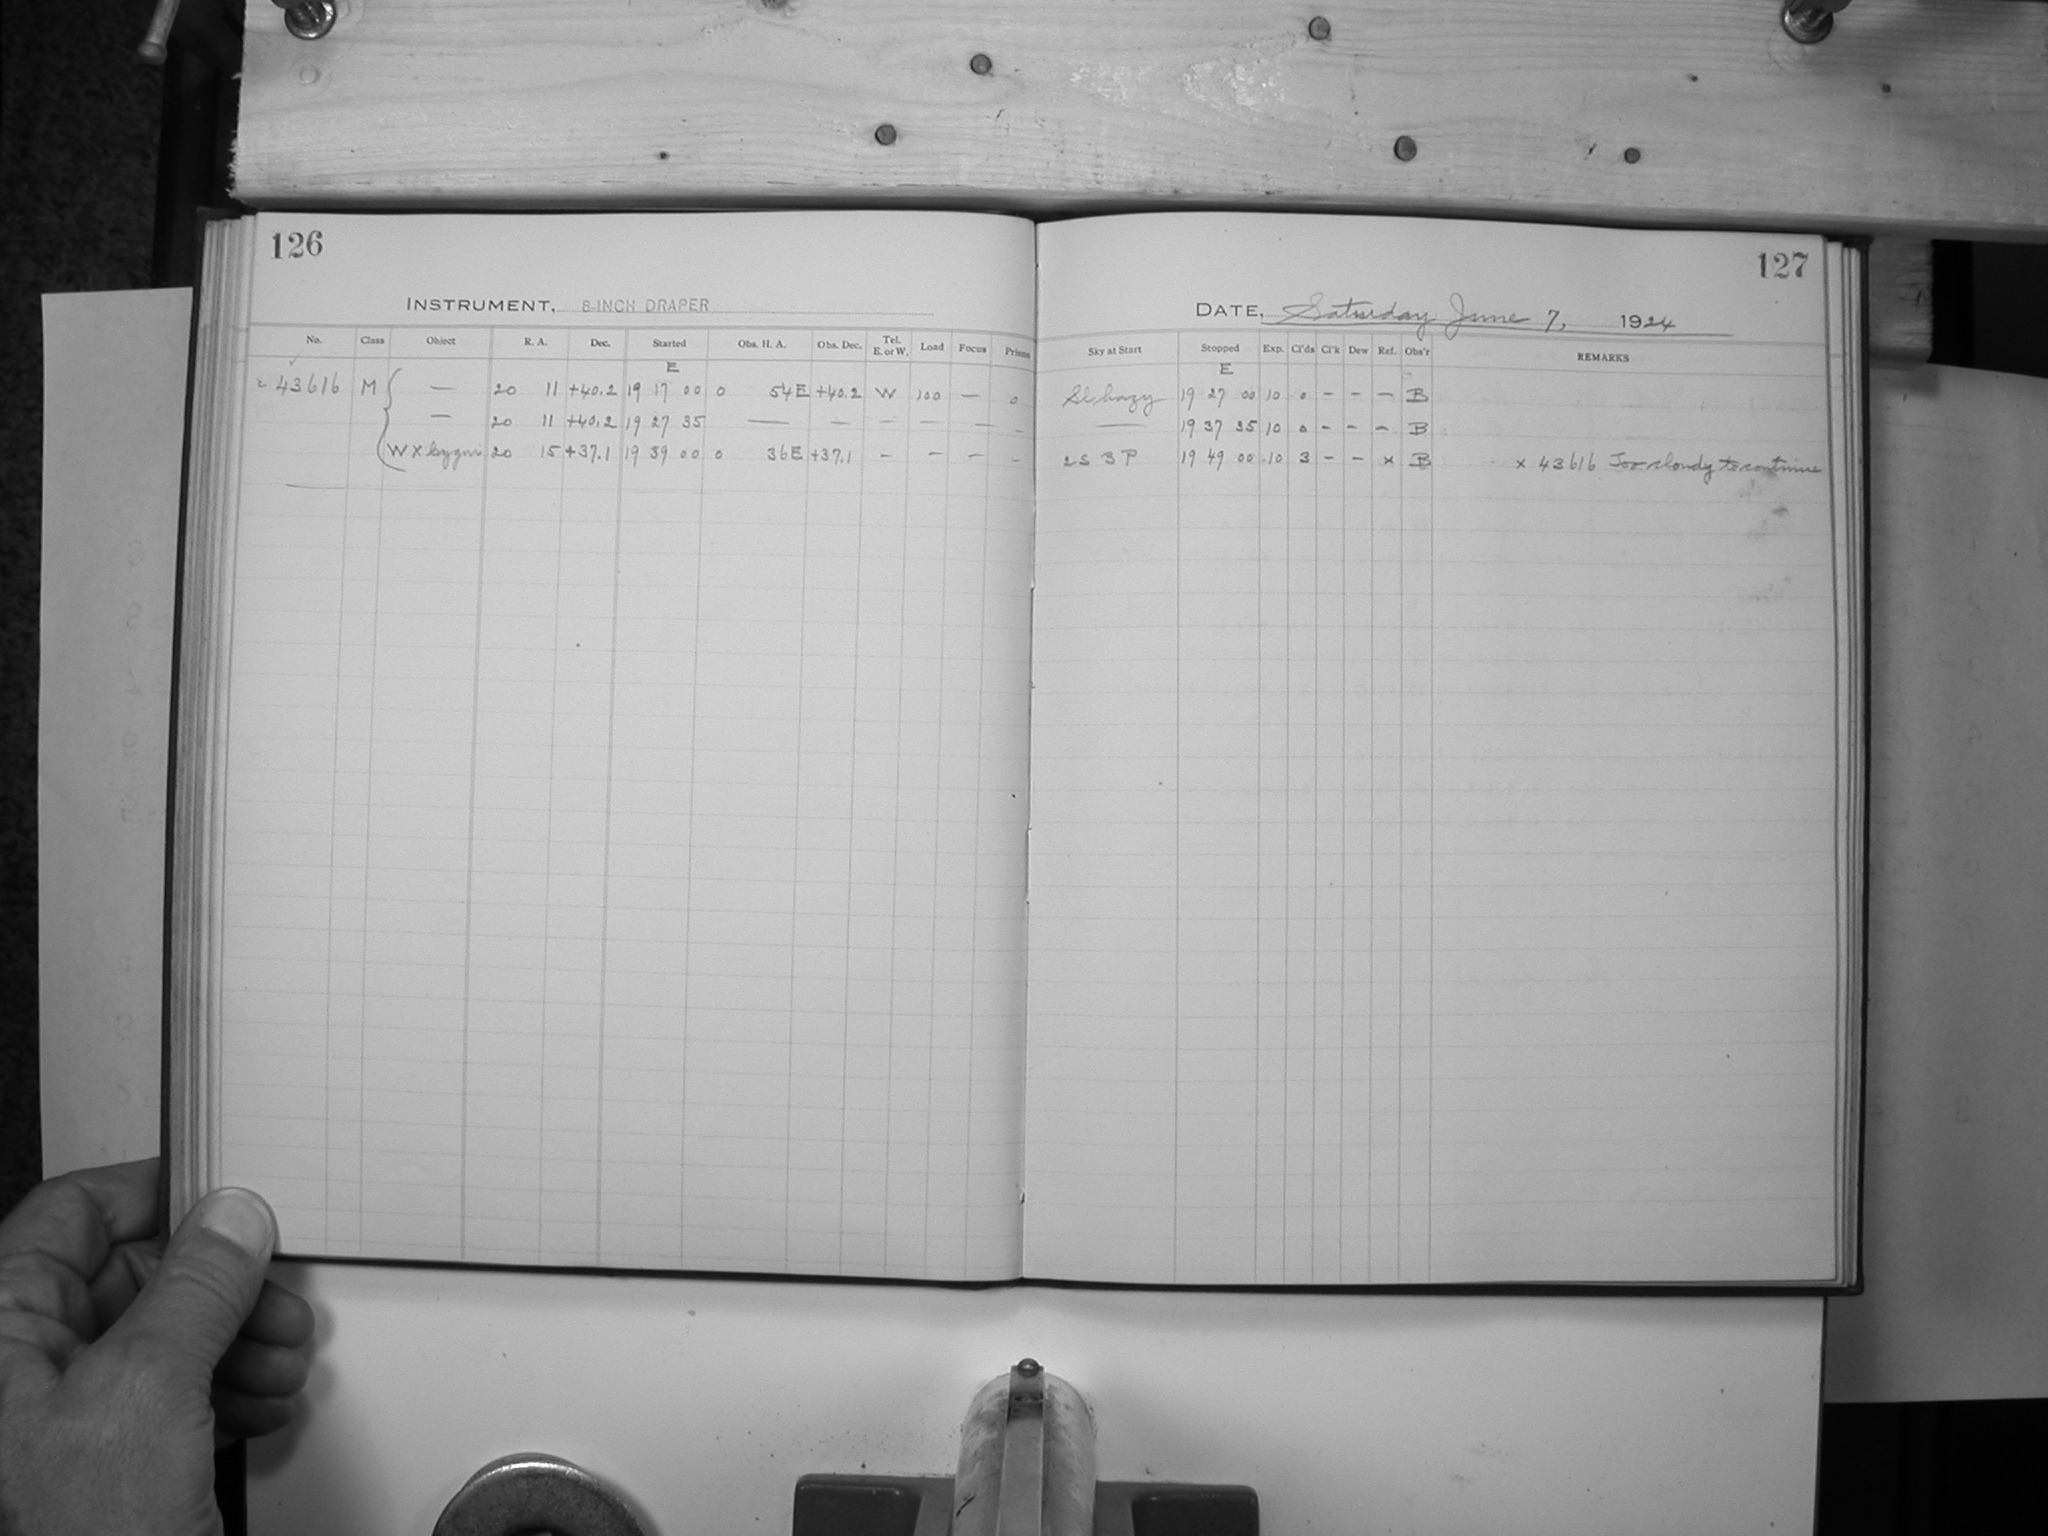 126
INSTRUMENT, 8-INCH DRAPER
No. Class Object R. A. Dec. Started Obs. H. A. Obs. Dec. Tel. E. or W. Load Focus Prisms
E
43616 M { — 20 11 +40.2 19 17 00 0 54E +40.2 W 100 — 0
— 20 11 +40.2 19 27 35 — — — — — –
WX Cygni 20 15 +37.1 19 39 00 0 36E +37.1 – – – –
127
DATE, Saturday June 7, 1924
Sky at Start Stopped Exp. Cl'ds Cl'k Dew Ref. Obs'r REMARKS
E
Sl. hazy 19 27 00 10 0 – – – B
— 19 37 35 10 0 – – – B
2S 3P 19 49 00 10 3 – – x B x 43616 Too cloudy to continue